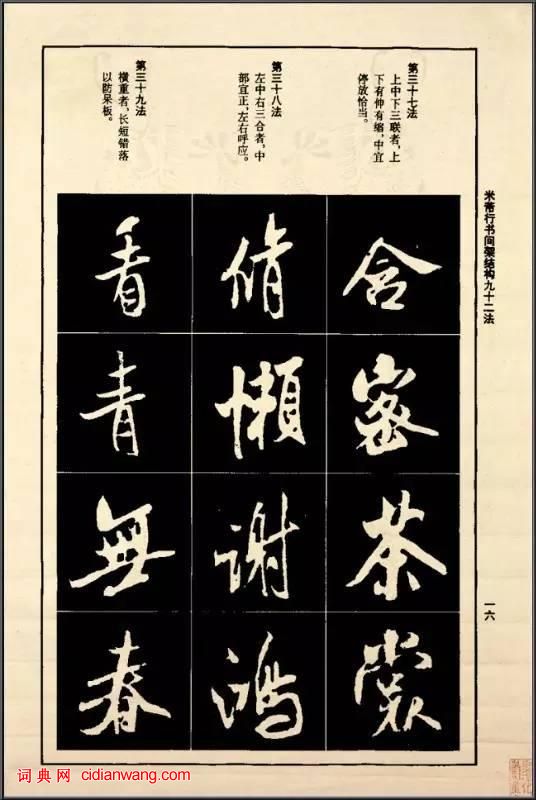 米芾行书间架结构九十二法
一六
第三十七法
上中下三联者，上
下有伸有缩，中宜
停放恰当。
第三十八法
左中右三合者，中
部宜正，左右呼应。
第三十九法
横重者，长短错落
以防呆板。
含密茶裳
脩懶謝鴻
看青無春
词典网 cidianwang.com